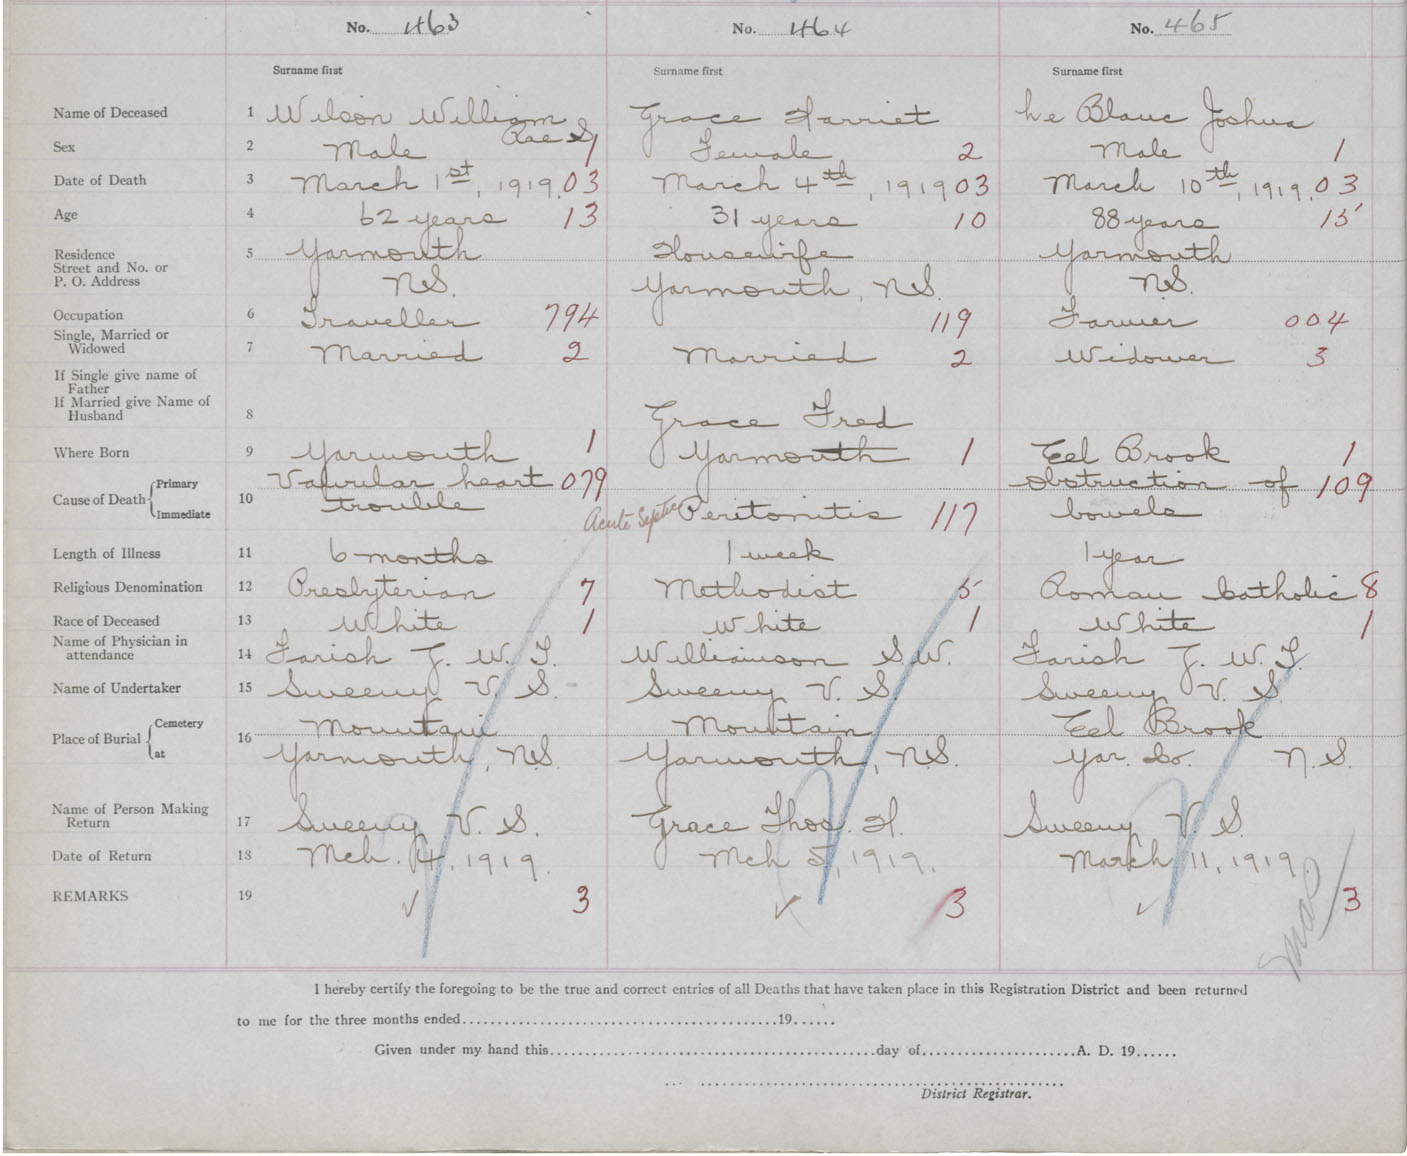 No. 463 No. 464 No. 465
Surname first Surname first Surname first
Name of Deceased 1 Wilson William Grace Harriet Le Blanc Joshua
Rae S
Sex 2 Male 1 Female 2 Male 1
Date of Death 3 March 1st, 1919. 03 March 4th, 1919 03 March 10th, 1919. 03
Age 4 62 years 13 31 years 10 88 years 15
Residence 5 Yarmouth Housewife Yarmouth
Street and No. or
P. O. Address N.S. Yarmouth, N.S. N.S.
Occupation 6 Traveller 794 119 Farmer 004
Single, Married or
Widowed 7 Married 2 Married 2 Widower 3
If Single give name of
Father
If Married give Name of
Husband 8 Grace Fred
Where Born 9 Yarmouth 1 Yarmouth 1 Eel Brook 1
Cause of Death Primary Valvular heart 079 Obstruction of 109
Immediate 10 trouble Acute Septic Peritonitis 117 bowels
Length of Illness 11 6 months 1 week 1 year
Religious Denomination 12 Presbyterian 7 Methodist 5 Roman Catholic 8
Race of Deceased 13 White 1 White 1 White 1
Name of Physician in
attendance 14 Farish J. W. T. Williamson S.W. Farish J. W. T.
Name of Undertaker 15 Sweeny V. S. Sweeny V. S. Sweeny V. S.
Place of Burial Cemetery 16 Mountain Mountain Eel Brook
at Yarmouth, N.S. Yarmouth, N.S. Yar. Co. N.S.
Name of Person Making
Return 17 Sweeny V. S. Grace Thos. H. Sweeny V. S.
Date of Return 18 Mch. 4, 1919. Mch 5, 1919. March 11, 1919.
REMARKS 19 ✓ 3 ✓ 3 ✓ 3
I hereby certify the foregoing to be the true and correct entries of all Deaths that have taken place in this Registration District and been returned
to me for the three months ended..........19......
Given under my hand this..........day of..........A. D. 19......
District Registrar.